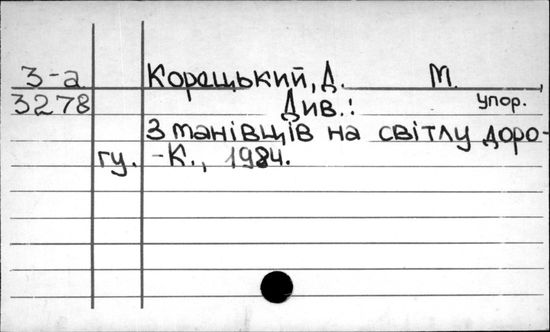 З-а Корецький, Д. М.
3278 Див.: упор.
З манівців на світлу доро-
гу. -К., 1984.